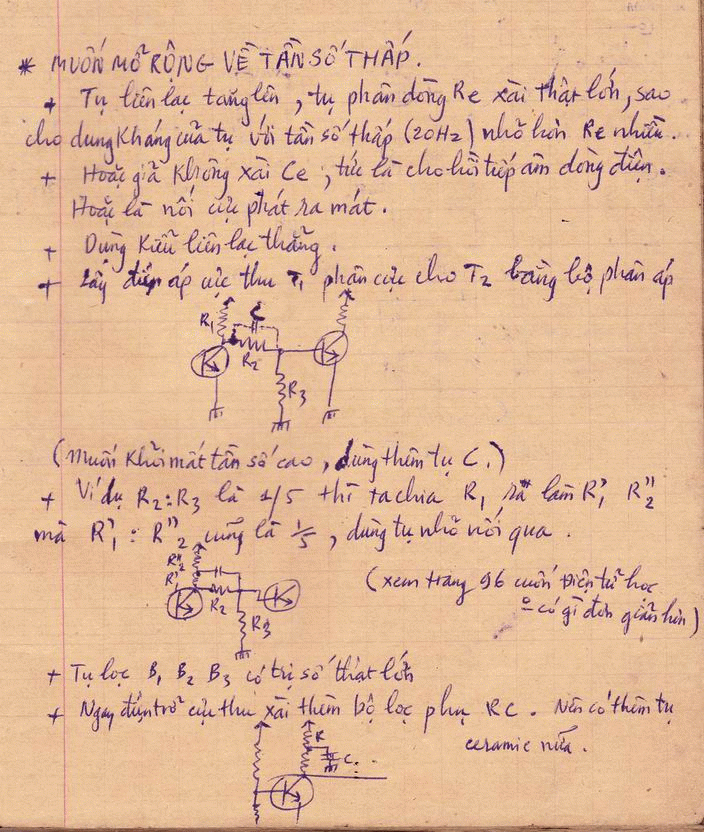 * MUỐN MỞ RỘNG VỀ TẦN SỐ THẤP.
+ Tụ liên lạc tăng lên, tụ phân dòng Re xài thật lớn, sao
cho dung kháng của tụ với tần số thấp (20Hz) nhỏ hơn Re nhiều.
+ Hoặc giả không xài Ce, tức là cho hồi tiếp âm dòng điện.
Hoặc là nối cực phát ra mát.
+ Dùng kiểu liên lạc thẳng.
+ Lấy điện áp cực thu T1 phân cực cho T2 bằng bộ phân áp
R1 C
R2
R3
(Muốn khỏi mất tần số cao, dùng thêm tụ C.)
+ Ví dụ R2:R3 là 1/5 thì ta chia R1 ra làm R'1 R"2
mà R'1 : R"2 cũng là 1/5, dùng tụ nhỏ nối qua.
R"2
R'1
R2
R3
(xem trang 96 cuốn Điện tử học
có gì đơn giản hơn)
+ Tụ lọc B1 B2 B3 có trị số thật lớn
+ Ngay điện trở cực thu xài thêm bộ lọc phụ RC. Nên có thêm tụ
ceramic nữa.
R
C